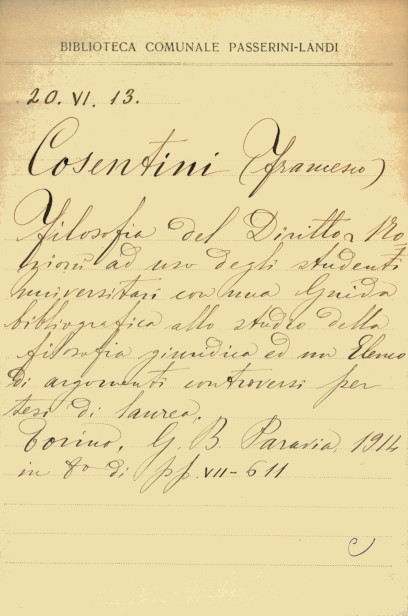 BIBLIOTECA COMUNALE PASSERINI-LANDI
20. VI. 13.
Cosentini (Francesco)
Filosofia del Diritto. No-
zioni ad uso degli studenti
universitari con una Guida
bibliografica allo studio della
filosofia giuridica ed un Elenco
di argomenti controversi per
tesi di laurea.
Torino. G. B. Paravia. 1914
in 8º di pp. VII-611